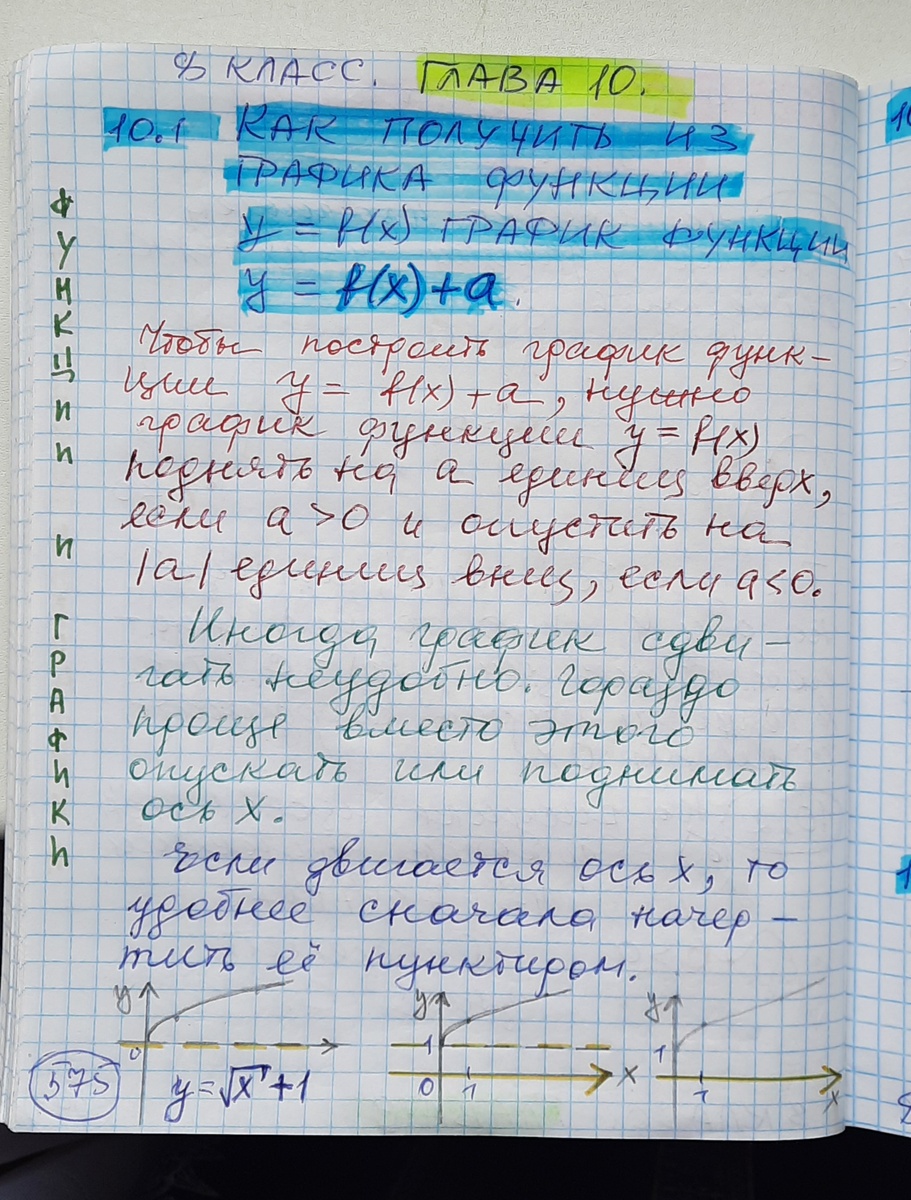 8 КЛАСС. ГЛАВА 10.
10.1 КАК ПОЛУЧИТЬ ИЗ
ГРАФИКА ФУНКЦИИ
y = f(x) ГРАФИК ФУНКЦИИ
y = f(x)+a.
ФУНКЦИИ И ГРАФИКИ
Чтобы построить график функ-
ции y = f(x)+a, нужно
график функции y = f(x)
поднять на a единиц вверх,
если a > 0 и опустить на
|a| единиц вниз, если a < 0.
Иногда график сдви-
гать неудобно. Гораздо
проще вместо этого
опускать или поднимать
ось x.
Если двигается ось x, то
удобнее сначала начер-
тить её пунктиром.
y 0
y = √x + 1
y 1 0 1 x
y 1 1 x
575